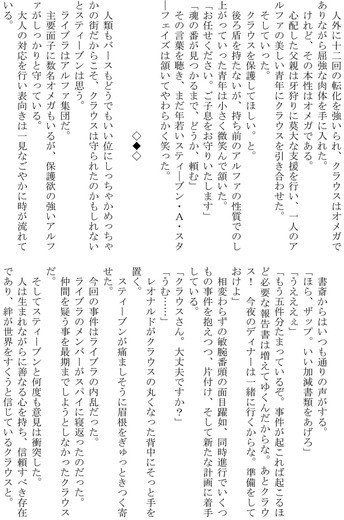 人外に十二回の転化を強いられ、クラウスはオメガで
ありながら屈強な肉体を手に入れた。
けれど、その本性はオメガである。
心配した父親は牙狩りに莫大な支援を行い、一人のア
ルファの美しい青年にクラウスを引き合わせた。
そしていった。
クラウスを保護してほしい。と。
後ろ盾を持たないが、持ち前のアルファの性質でのし
上がっていった青年は小さく微笑んで頷いた。
「お任せください。ご子息をお守りいたします」
「魂の番が見つかるまで、どうか、頼む」
その言葉を聴き、まだ年若いスティーブン・Ａ・スタ
ーフェイズは頷いてやわらかく笑った。
◇◆◇
人類もバースもどうでもいい位にしっちゃかめっちゃ
かの街だからこそ、クラウスは守られたのかもしれない
とスティーブンは思う。
ライブラはアルファ集団だ。
主要面子に数名オメガもいるが、保護欲の強いアルフ
ァがしっかりと守っている。
大人の対応を行い表向きは一見なごやかに時が流れて
いる。
書斎からはいつも通りの声がする。
「ほら、ザップ。いい加減書類をあげろ」
「うええええ」
「もう五件分たまっているぞ。事件が起これば起こるほ
ど必要な報告書は増えてゆくんだからな。あとクラウ
ス！　今夜のディナーは一緒に行くからな。準備をして
おけよ」
相変わらずの敏腕番頭の面目躍如、同時進行でいくつ
もの事件を抱えつつ、片付け、そして新たな計画に着手
している。
「クラウスさん。大丈夫ですか？」
「うむ……」
レオナルドがクラウスの丸くなった背中にそっと手を
置く。
スティーブンが痛ましそうに眉根をぎゅっときつく寄
せた。
今回の事件はライブラの内乱だった。
ライブラのメンバーがスパイに寝返ったのだった。
仲間を疑う事を最期までしようとしなかったクラウス
だ。
そしてスティーブンと何度も意見は衝突した。
人は生まれながらに善なる心を持ち、信頼すべき存在
であり、絆が世界をすくうと信じているクラウスと。